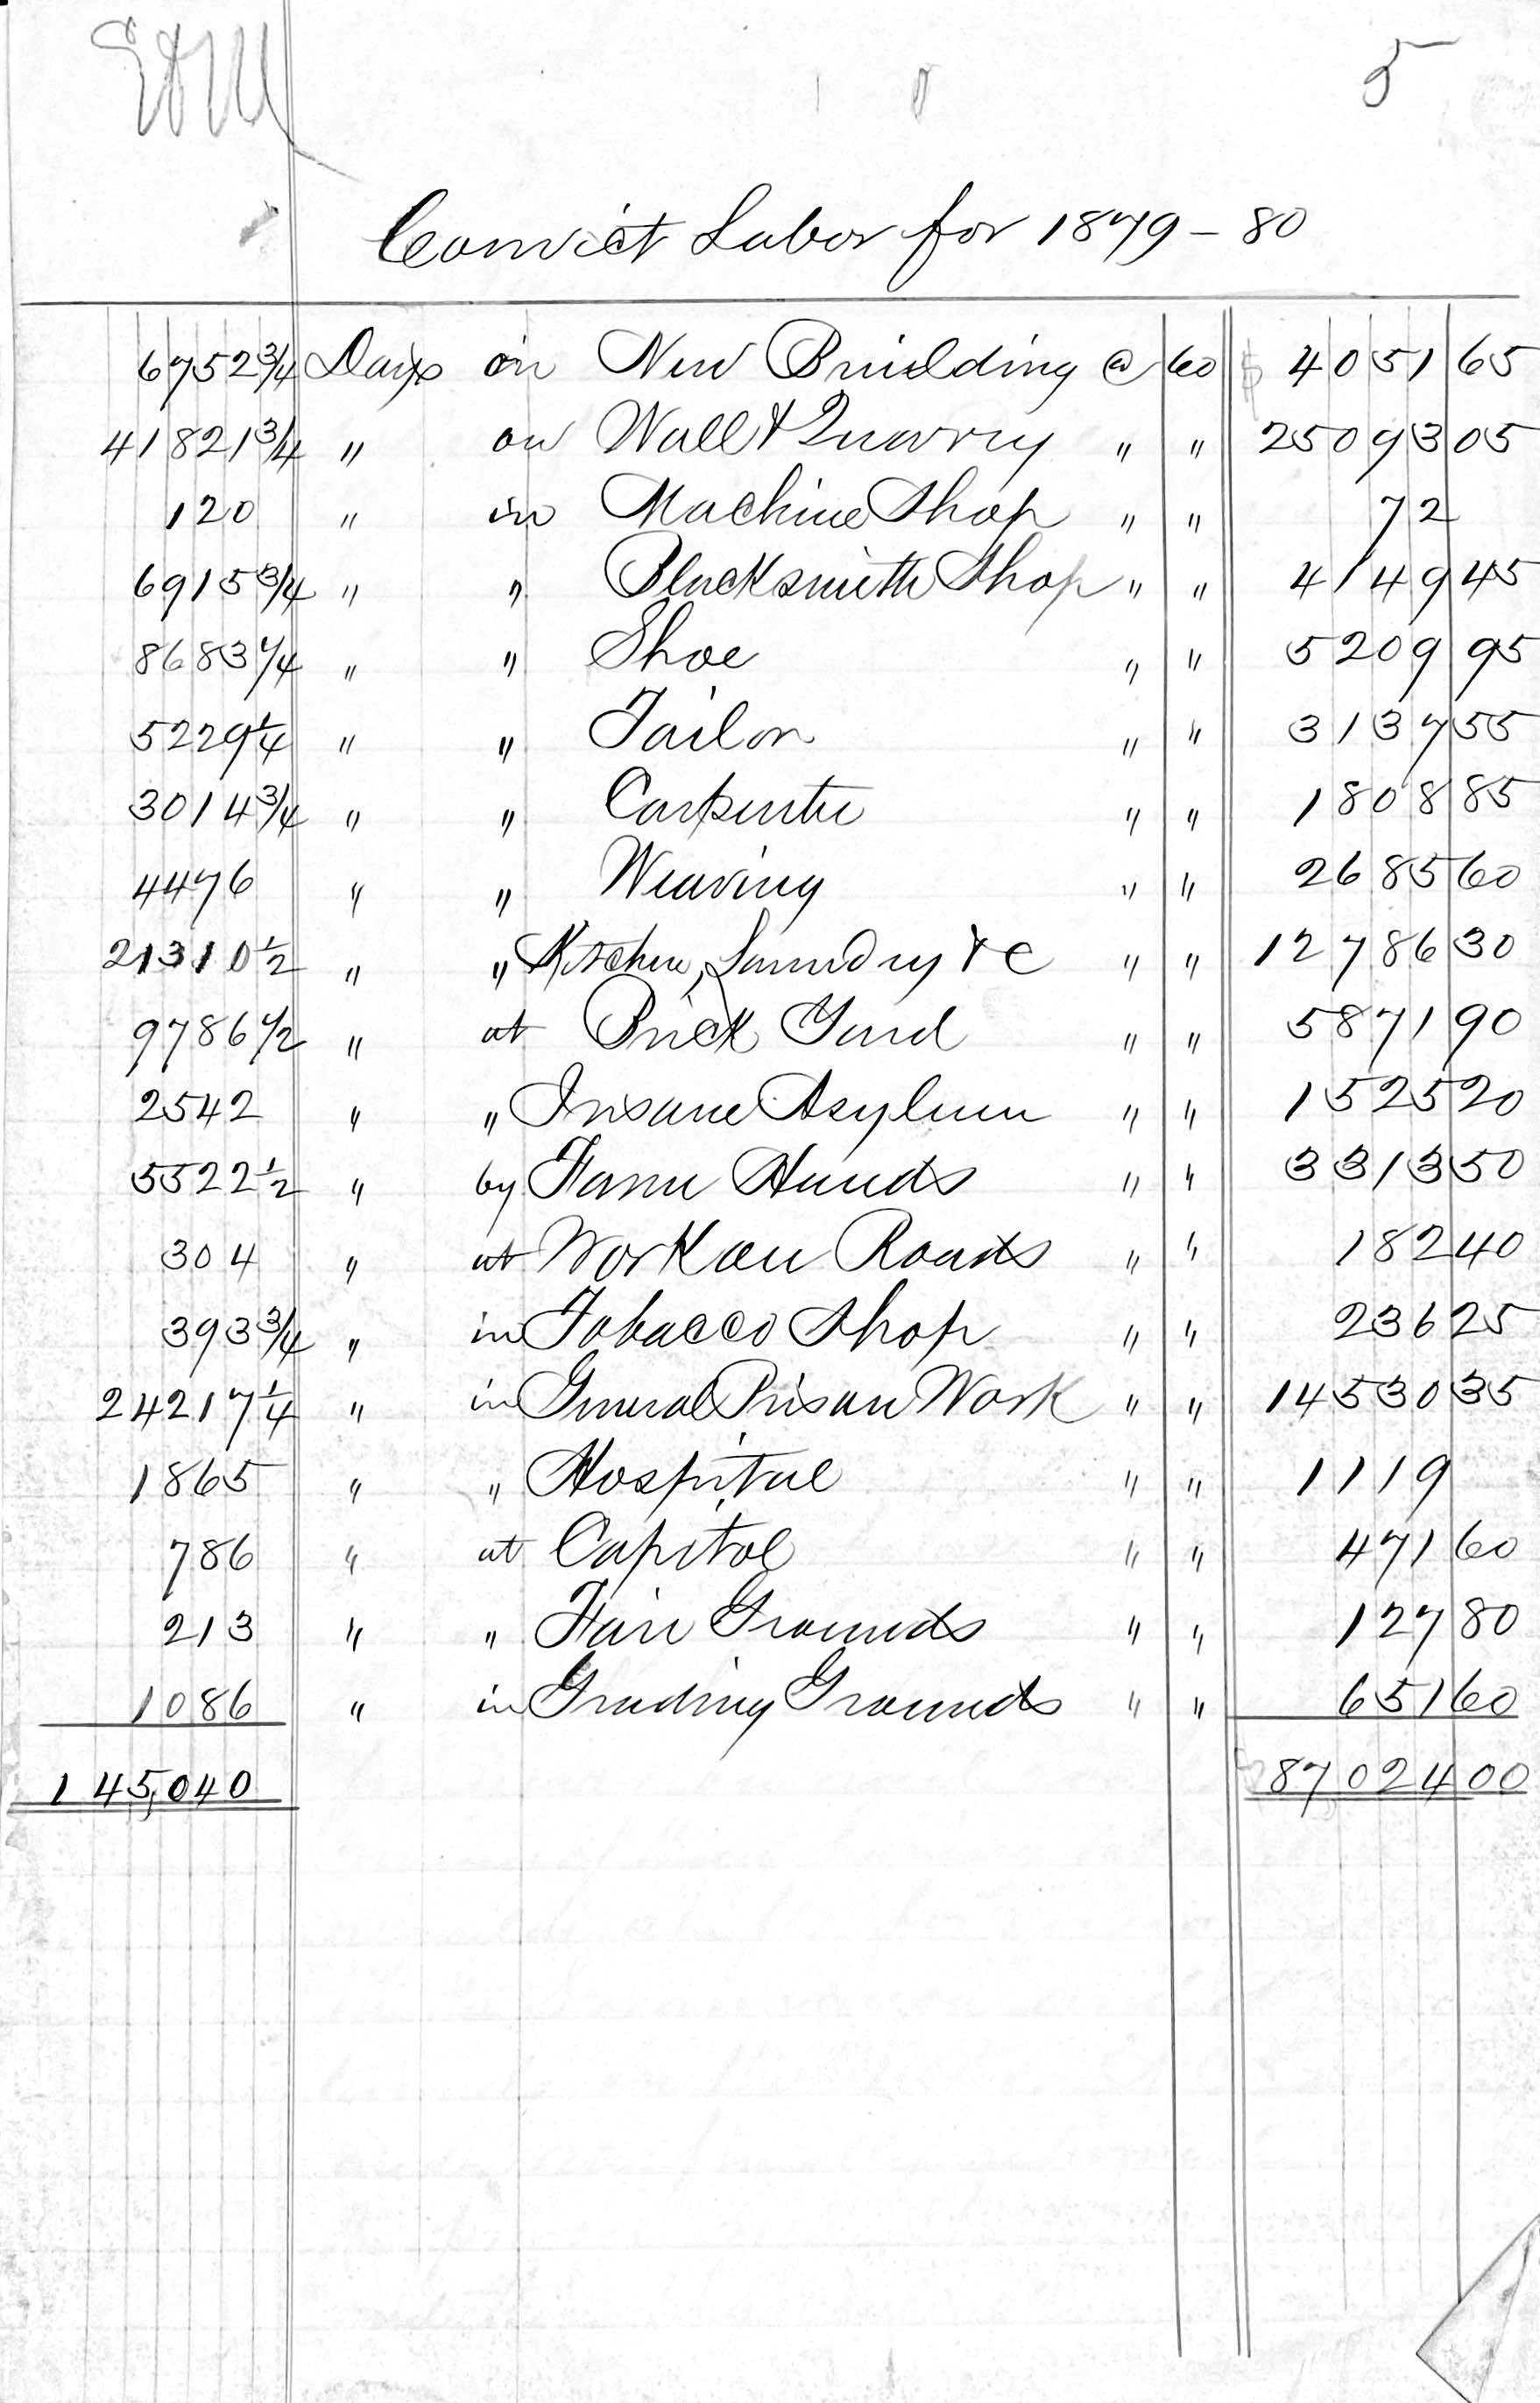 5
Convict Labor for 1879-80
6752 3/4 Days on New Building @ 60 $ 4051 65
41821 3/4 " on Wall & Quarry " " 25093 05
120 " in Machine Shop " " 72
6915 3/4 " " Blacksmith Shop " " 4149 45
8683 1/4 " " Shoe " " 5209 95
5229 1/4 " " Tailor " " 3137 55
3014 3/4 " " Carpenter " " 1808 85
4476 " " Weaving " " 2685 60
21310 1/2 " " Kitchen, Laundry & C " " 12786 30
9786 1/2 " at Brick Yard " " 5871 90
2542 " " Insane Asylum " " 1525 20
5522 1/2 " by Farm Hands " " 3313 50
304 " at Work on Roads " " 182 40
393 3/4 " in Tobacco Shop " " 236 25
24217 1/4 " in General Prison Work " " 14530 35
1865 " " Hospital " " 1119
786 " at Capitol " " 471 60
213 " " Fair Grounds " " 127 80
1086 " in Grading Grounds " " 651 60
145,040 $ 87024 00